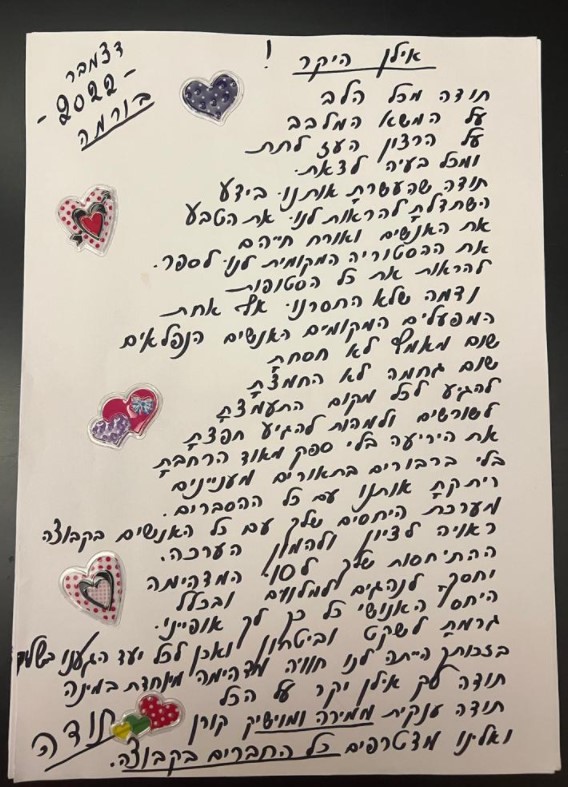 אילן היקר !
דצמבר
-2022-
בורמה
תודה מכל הלב
על המשא המלבב
על הרצון העז לתת
ומכל בעיה לצאת.
תודה שהעשרת אותנו בידע
השתדלת להראות לנו את הטבע
את האנשים ואורח חייהם
את ההסטוריה המקומית לנו לספר.
להראות את כל הסטופות
ודמה שלא החסרנו אף אחת
המפעלים המקומים האנשים הנפלאים
שום מאמץ לא חסכת
שום גחמה לא החמצת
להגיע לכל מקום התעמצת
לשורשים ולמהות להגיע חפצת
את היריעה בלי ספק מאוד הרחבת
בלי ברבורים בתאורים מעניינים
ריתקת אותנו עם כל ההסברים.
מערכת היחסים שלך עם כל האנשים בקבוצה
ראויה לציון ולהמון הערכה.
ההתיחסות שלך לסו המדהימה
יחסך לנהגים למלונים ובכלל
היחס האנושי כל כך לך אופייני.
גרמת לשקט וביטחון ואכן לכל יעד הגענו בשלום
בזכותך הייתה לנו חוויה מדהימה מיוחדת במינה
תודה לך אילן יקר על הכל
תודה ענקית ממירה ומוישיק קורן
ואלינו מצטרפים כל החברים בקבוצה.
תודה